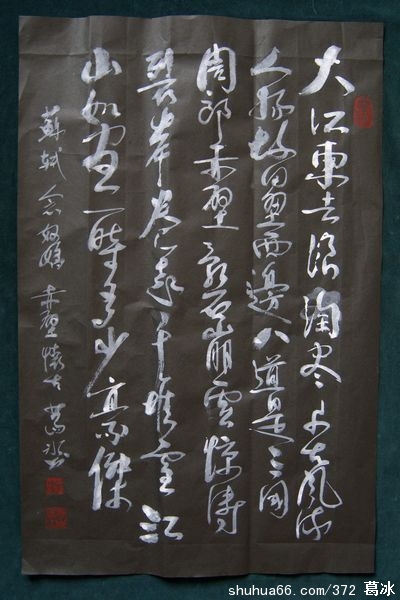 大江東去浪淘尽千古風流
人物故壘西邊人道是三国
周郎赤壁乱石崩雲惊涛
裂岸卷起千堆雪江
山如画一時多少豪傑
蘇軾念奴嬌赤壁懷古葛冰
shuhua66.com/372 葛冰